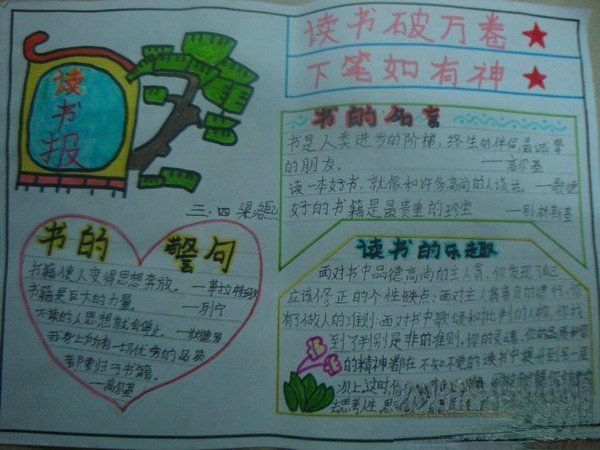 读书报
三.四 梁
读书破万卷
下笔如有神
书的名言
书是人类进步的阶梯，终生的伴侣最诚挚
的朋友。 ——高尔基
读一本好书，就像和许多高尚的人谈话。——歌德
好的书籍是最贵重的珍宝 ——别林斯基
书的警句
书籍使人变得思想奔放。
书籍是巨大的力量。 ——列宁
的人思想就会停止。——狄德罗
我身上的一切优秀的品质
都要归于书籍。
——高尔基
读书的乐趣
面对书中品德高尚的主人翁，你发现了自己
应该修正的个性缺点；面对主人翁善良的德行，你
有了做人的准则；面对书中歌颂和批判的人物，你找
到了判别是非的准则。你的灵魂、你的品质和你
的精神都在不知不觉的读书中提升到另一层
次上这时，
去思考人生，思